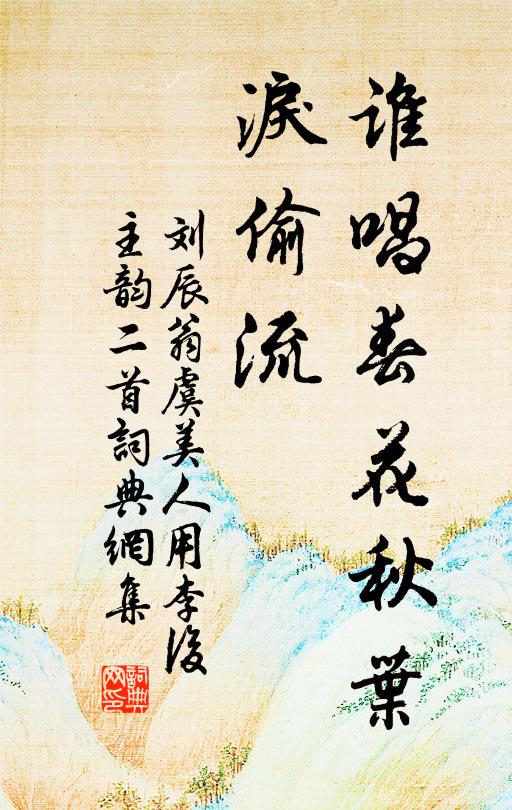 谁唱春花秋葉
淚偷流
刘辰翁虞美人用李後
主韵二首詞典網集
詞典网印